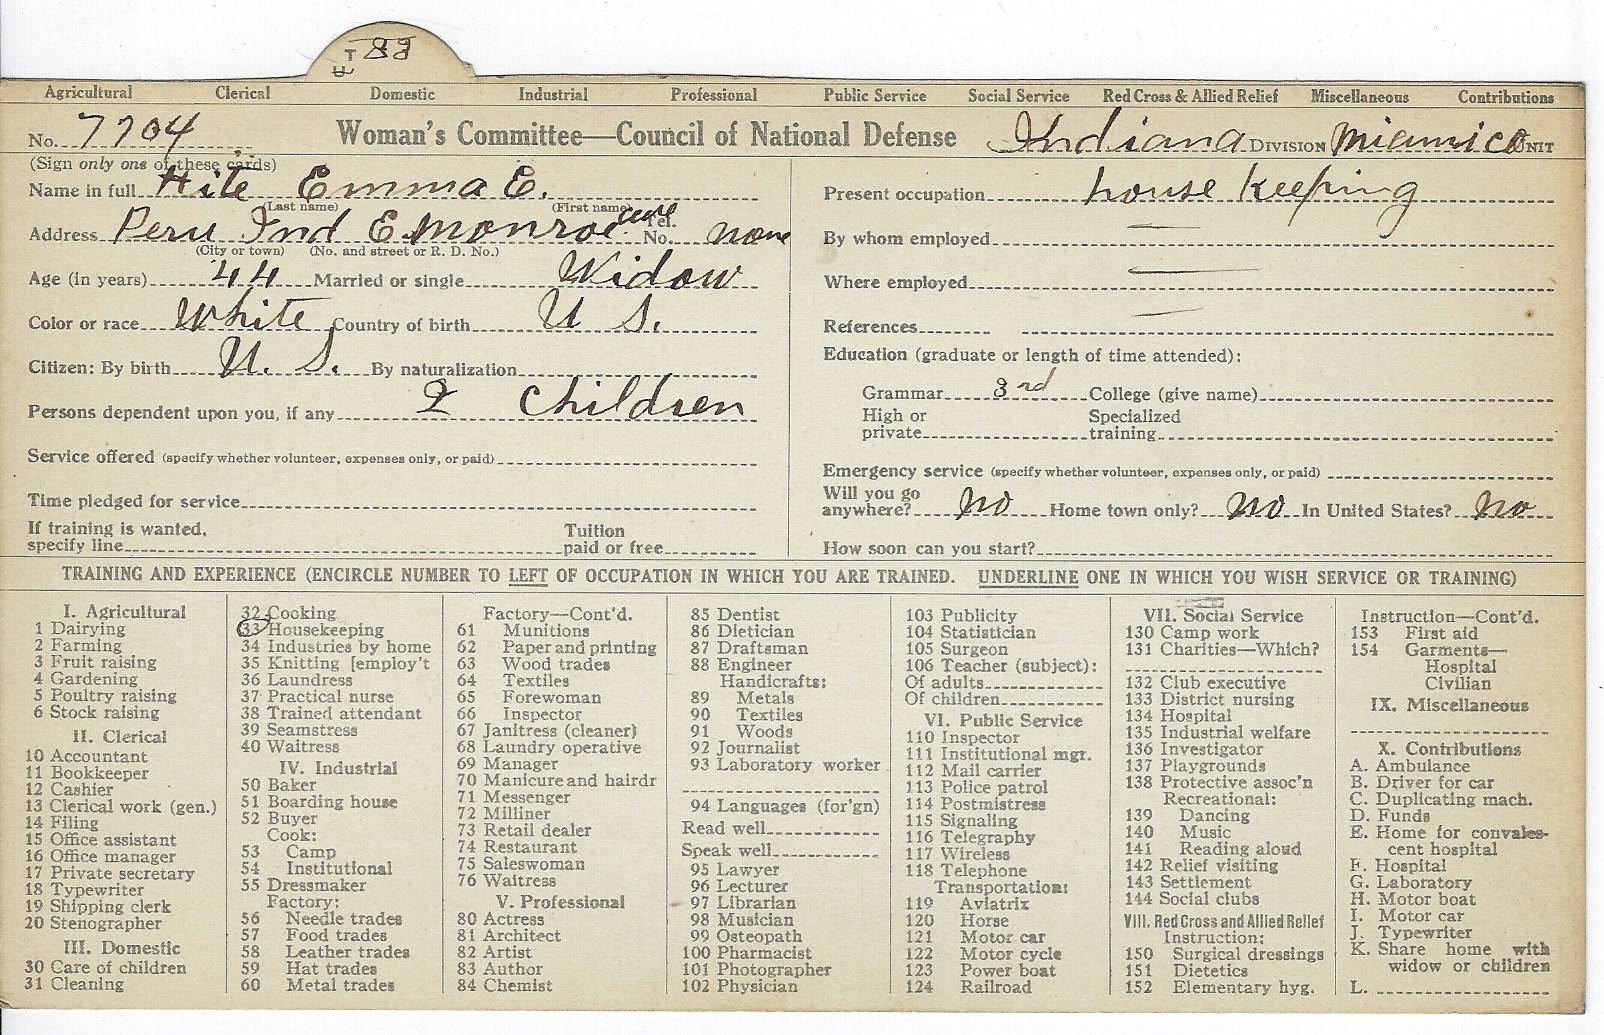 T 33
Agricultural Clerical Domestic Industrial Professional Public Service Social Service Red Cross & Allied Relief Miscellaneous Contributions
No. 7704 Woman's Committee—Council of National Defense Indiana DIVISION Miami Co UNIT
(Sign only one of these cards)
Name in full Hite Emma E.
(Last name) (First name)
Address Peru Ind E. Monroe Tel. No. none
(City or town) (No. and street or R. D. No.)
Age (in years) 44 Married or single Widow
Color or race White Country of birth U S.
Citizen: By birth U. S. By naturalization
Persons dependent upon you, if any 2 Children
Service offered (specify whether volunteer, expenses only, or paid)
Time pledged for service
If training is wanted, specify line Tuition paid or free
Present occupation house keeping
By whom employed —
Where employed —
References —
Education (graduate or length of time attended):
Grammar 3rd College (give name)
High or private Specialized training
Emergency service (specify whether volunteer, expenses only, or paid)
Will you go anywhere? no Home town only? no In United States? no
How soon can you start?
TRAINING AND EXPERIENCE (ENCIRCLE NUMBER TO LEFT OF OCCUPATION IN WHICH YOU ARE TRAINED. UNDERLINE ONE IN WHICH YOU WISH SERVICE OR TRAINING)
I. Agricultural
1 Dairying
2 Farming
3 Fruit raising
4 Gardening
5 Poultry raising
6 Stock raising
II. Clerical
10 Accountant
11 Bookkeeper
12 Cashier
13 Clerical work (gen.)
14 Filing
15 Office assistant
16 Office manager
17 Private secretary
18 Typewriter
19 Shipping clerk
20 Stenographer
III. Domestic
30 Care of children
31 Cleaning
32 Cooking
33 Housekeeping
34 Industries by home
35 Knitting [employ't
36 Laundress
37 Practical nurse
38 Trained attendant
39 Seamstress
40 Waitress
IV. Industrial
50 Baker
51 Boarding house
52 Buyer
Cook:
53 Camp
54 Institutional
55 Dressmaker
Factory:
56 Needle trades
57 Food trades
58 Leather trades
59 Hat trades
60 Metal trades
Factory—Cont'd.
61 Munitions
62 Paper and printing
63 Wood trades
64 Textiles
65 Forewoman
66 Inspector
67 Janitress (cleaner)
68 Laundry operative
69 Manager
70 Manicure and hairdr
71 Messenger
72 Milliner
73 Retail dealer
74 Restaurant
75 Saleswoman
76 Waitress
V. Professional
80 Actress
81 Architect
82 Artist
83 Author
84 Chemist
85 Dentist
86 Dietician
87 Draftsman
88 Engineer
Handicrafts:
89 Metals
90 Textiles
91 Woods
92 Journalist
93 Laboratory worker
94 Languages (for'gn)
Read well
Speak well
95 Lawyer
96 Lecturer
97 Librarian
98 Musician
99 Osteopath
100 Pharmacist
101 Photographer
102 Physician
103 Publicity
104 Statistician
105 Surgeon
106 Teacher (subject):
Of adults
Of children
VI. Public Service
110 Inspector
111 Institutional mgr.
112 Mail carrier
113 Police patrol
114 Postmistress
115 Signaling
116 Telegraphy
117 Wireless
118 Telephone
Transportation:
119 Aviatrix
120 Horse
121 Motor car
122 Motor cycle
123 Power boat
124 Railroad
VII. Social Service
130 Camp work
131 Charities—Which?
132 Club executive
133 District nursing
134 Hospital
135 Industrial welfare
136 Investigator
137 Playgrounds
138 Protective assoc'n
Recreational:
139 Dancing
140 Music
141 Reading aloud
142 Relief visiting
143 Settlement
144 Social clubs
VIII. Red Cross and Allied Relief
Instruction:
150 Surgical dressings
151 Dietetics
152 Elementary hyg.
Instruction—Cont'd.
153 First aid
154 Garments—
Hospital
Civilian
IX. Miscellaneous
X. Contributions
A. Ambulance
B. Driver for car
C. Duplicating mach.
D. Funds
E. Home for convales-
cent hospital
F. Hospital
G. Laboratory
H. Motor boat
I. Motor car
J. Typewriter
K. Share home with
widow or children
L.